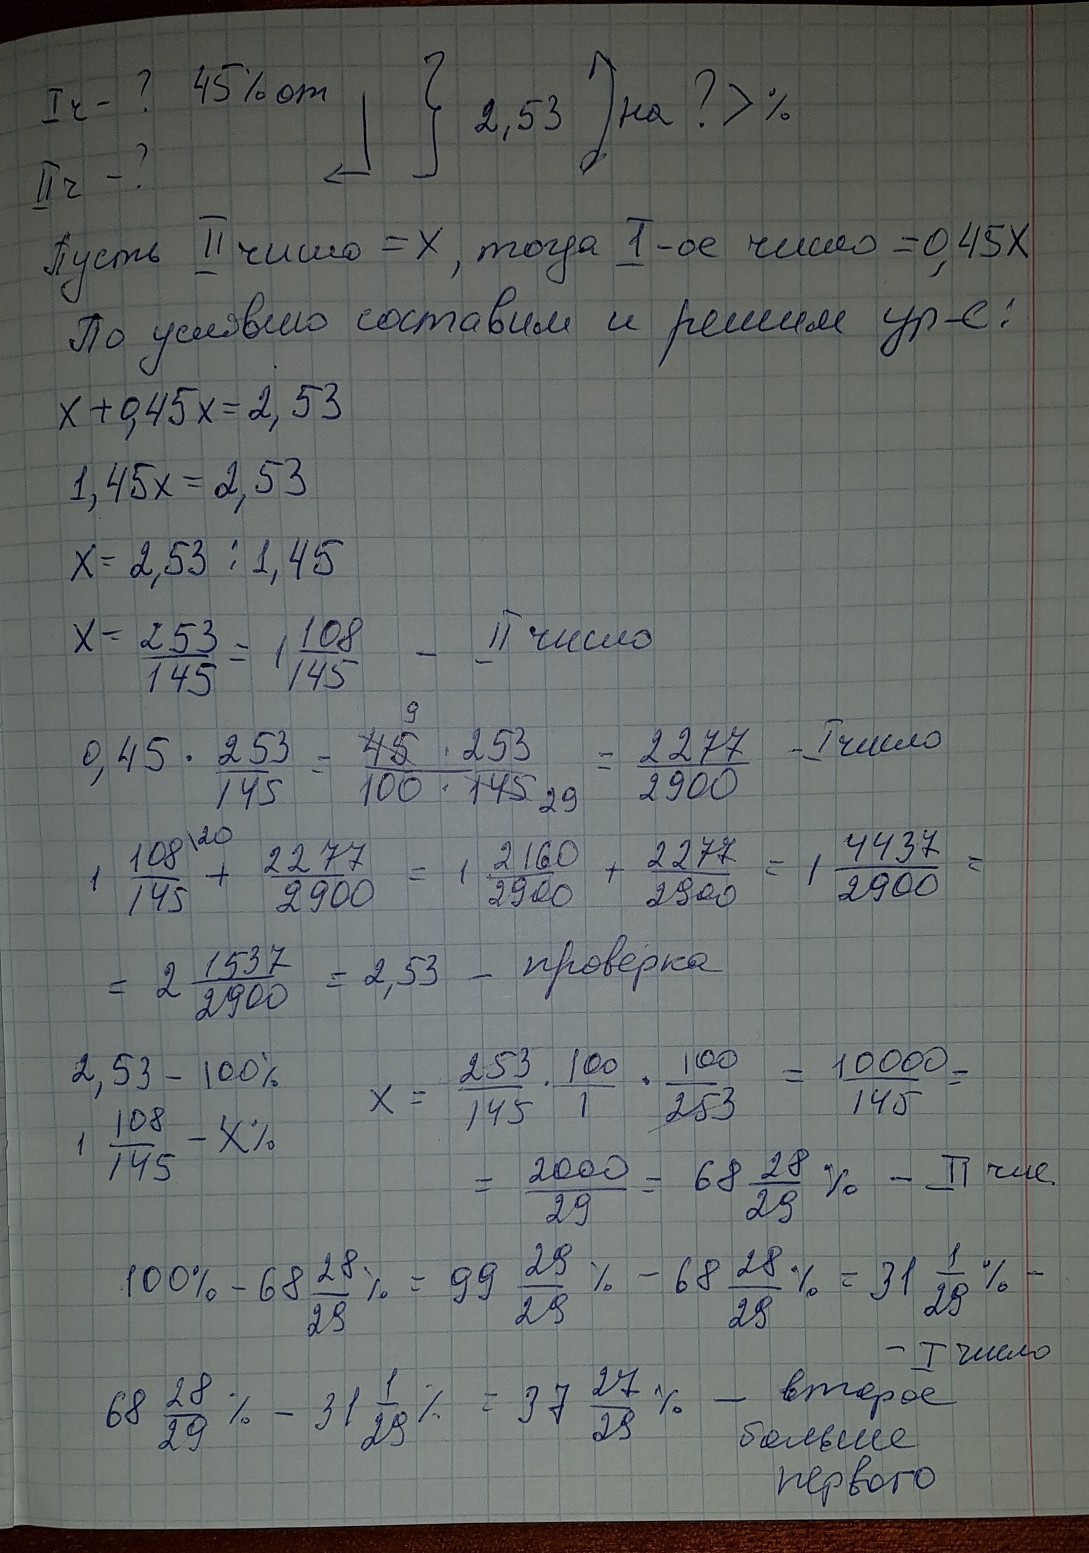 I ч - ? 45% от } 2,53 ) на ? > %
II ч - ?
Пусть II число = x, тогда I-ое число = 0,45x
По условию составим и решим ур-е:
x + 0,45x = 2,53
1,45x = 2,53
x = 2,53 : 1,45
x = 253/145 = 1 108/145 - II число
0,45 · 253/145 = 45 9 · 253 / 100 · 145 29 = 2277/2900 - I число
1 108/145 \20 + 2277/2900 = 1 2160/2900 + 2277/2900 = 1 4437/2900 =
= 2 1537/2900 = 2,53 - проверка
2,53 - 100% x = 253/145 · 100/1 · 100/253 = 10000/145 =
1 108/145 - x%
= 2000/29 = 68 28/29 % - II чис.
100% - 68 28/29 % = 99 29/29 % - 68 28/29 % = 31 1/29 % -
- I число
68 28/29 % - 31 1/29 % = 37 27/29 % - второе
больше
первого